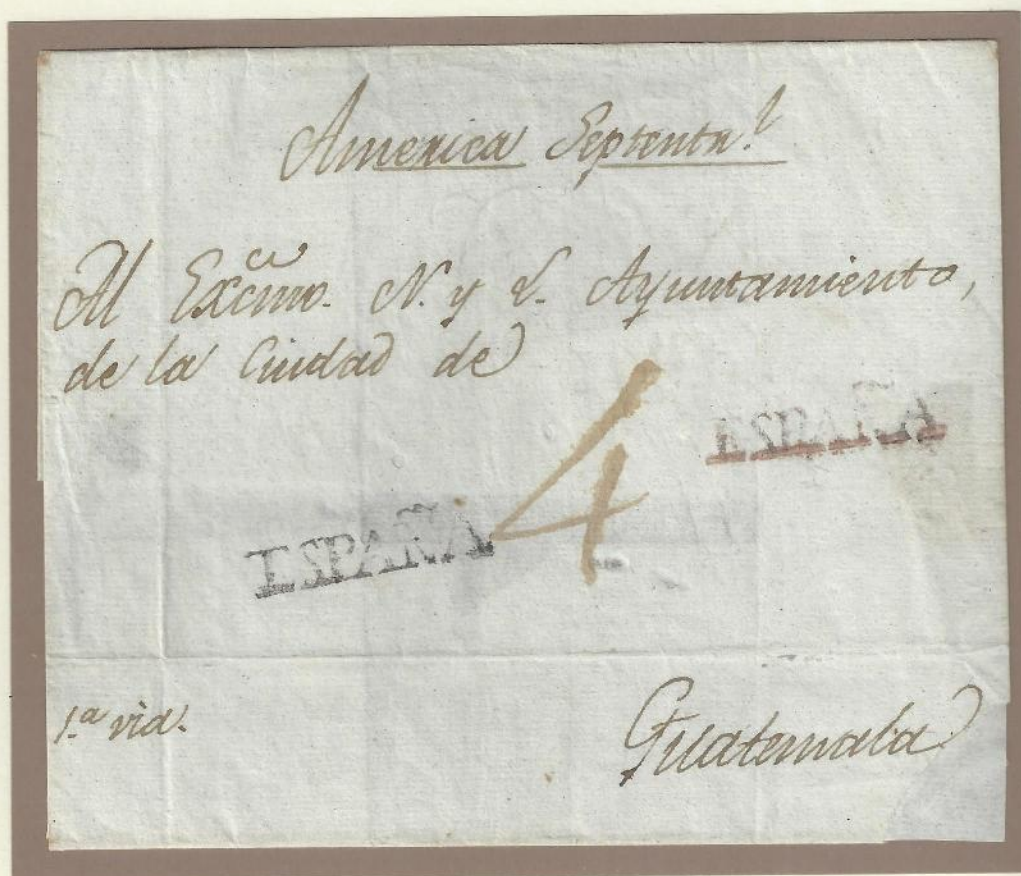 America Septentr.l
Al Excmo. N. y L. Ayuntamiento,
de la Ciudad de
ESPAÑA
4
ESPAÑA
1.a via.
Guatemala